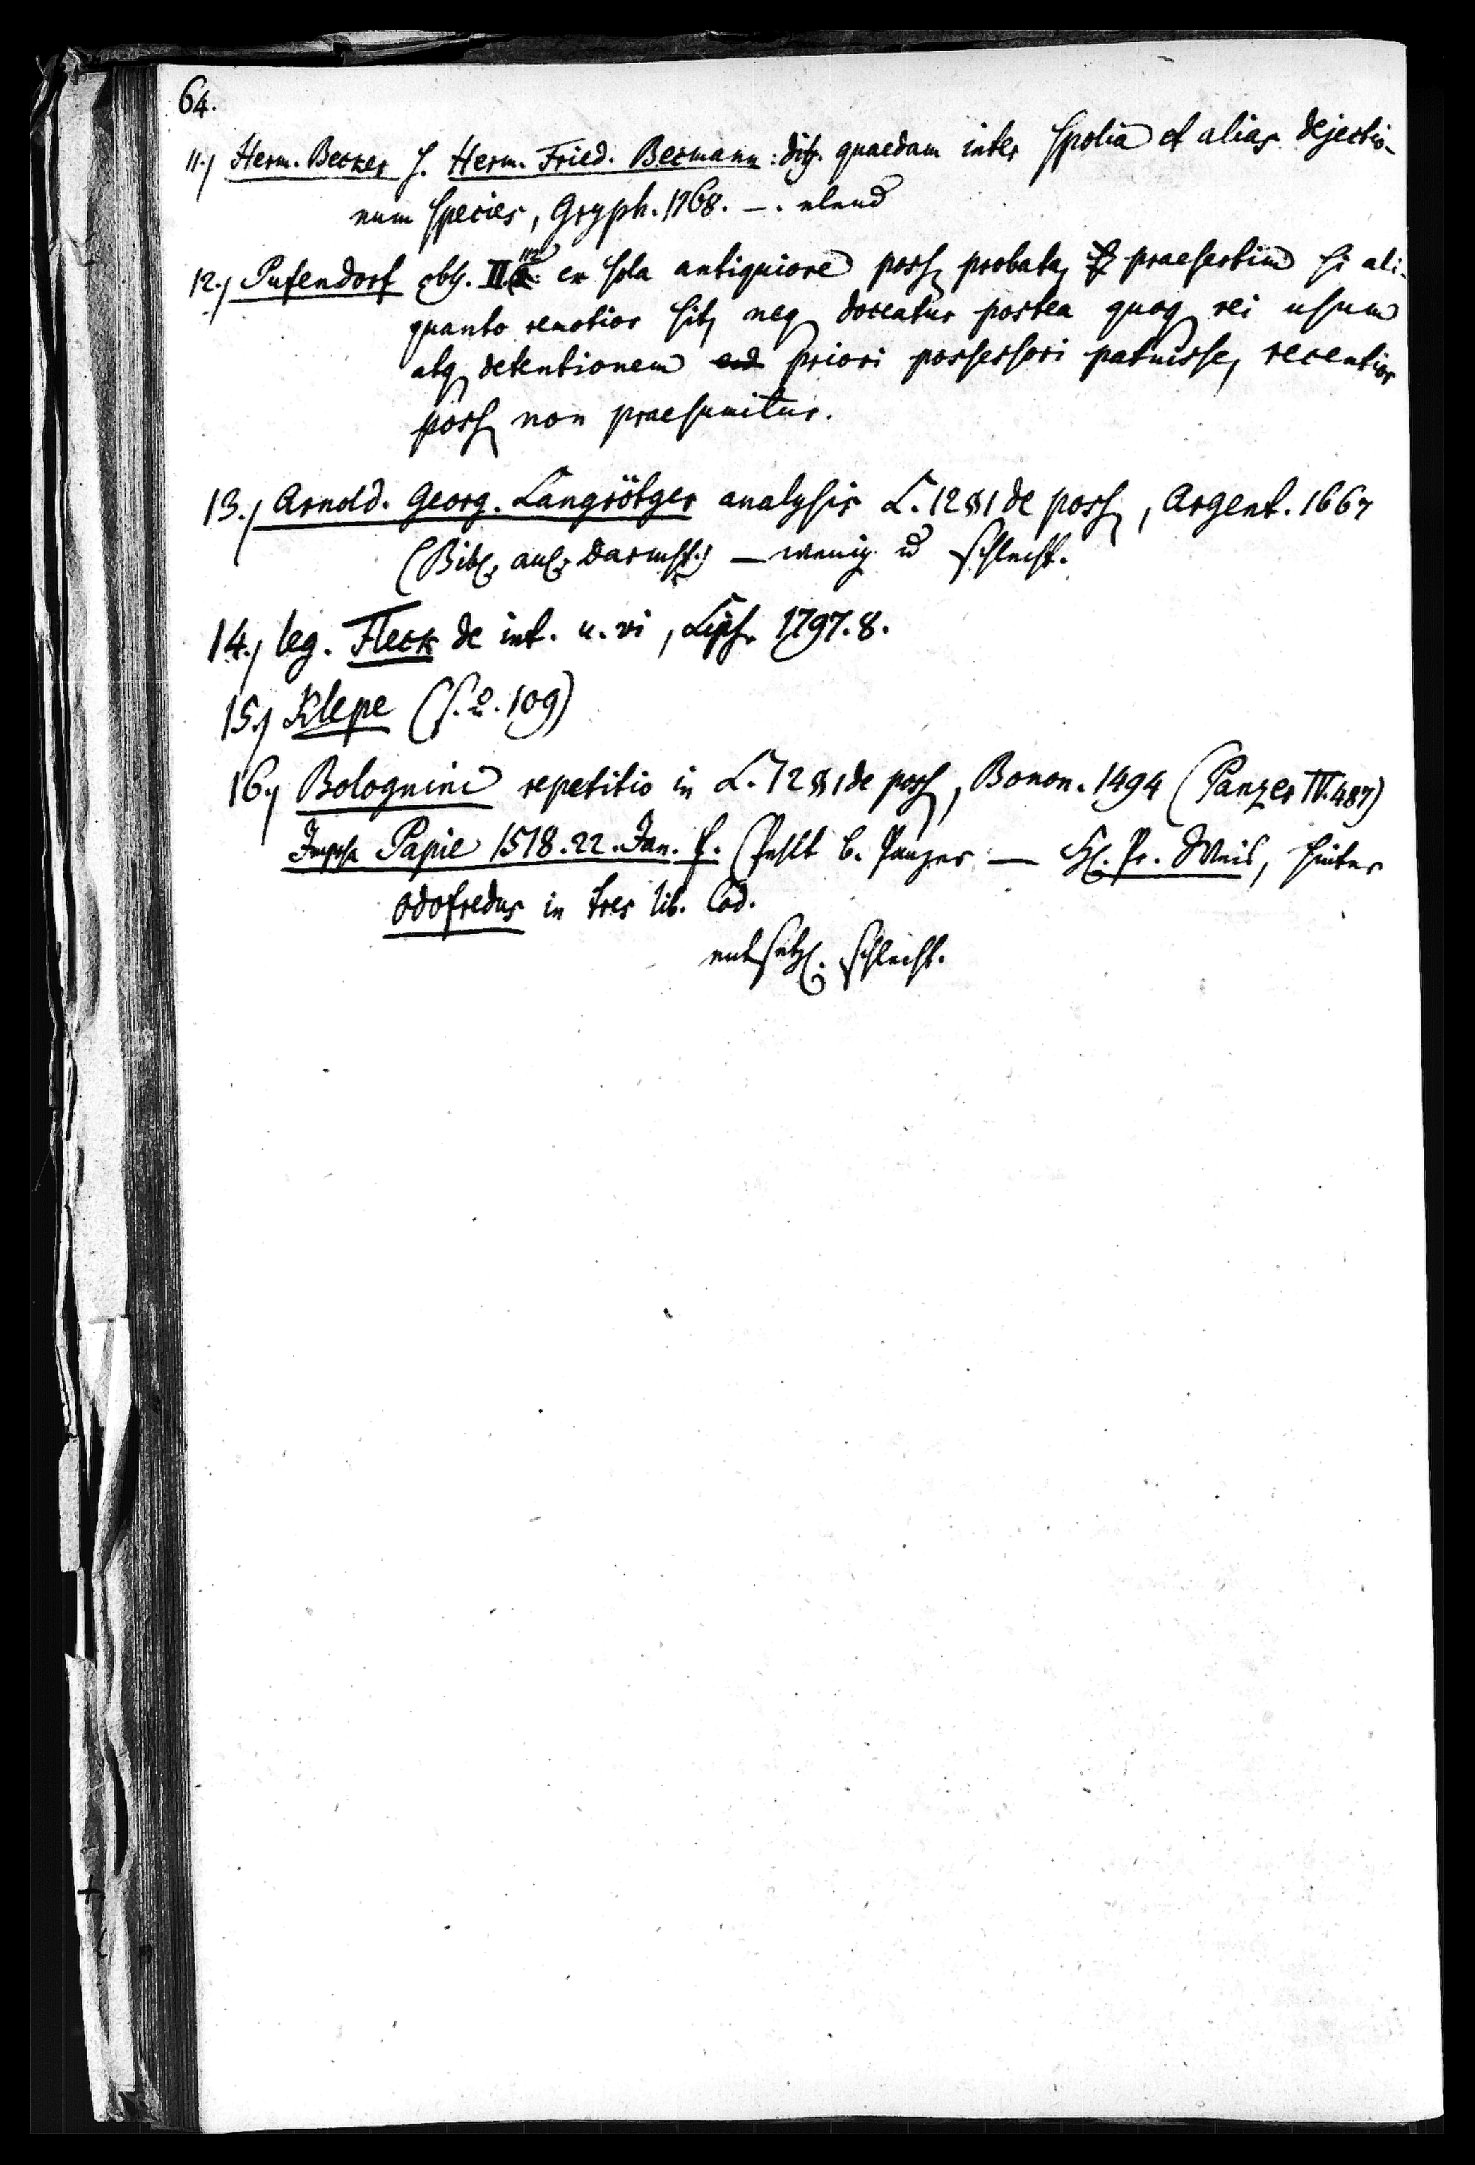 64.
11.) Herm. Becker s. Herm. Fried. Becmann: quaedam inter spolia et alias dejectio-
num species, Gryph. 1768. —. elend
12.) Pufendorf obs. II. ex sola antiquiore poss. probata, praesertim si ali-
quanto remotior sit, neq. doceatur postea quoq. rei usum
atq. detentionem priori possessori patuisse, recentior
poss. non praesumitur.
13.) Arnold. Georg. Langrötger analysis L. 12 § 1 de poss., Argent. 1667
(Bibl. aul. Darmst.) — wenig u. schlecht.
14.) leg. Fleck de int. u. vi, Lips. 1797. 8.
15.) Klepe (s. 2. 109)
16.) Bolognini repetitio in L. 12 § 1 de poss., Bonon. 1494 (Panzer IV. 487)
Impssa Papie 1518. 22. Jan. f. (fehlt b. Panzer — Pr. Weis, hinter
Odofredus in tres lib. Cod.
entsetzl. schlecht.